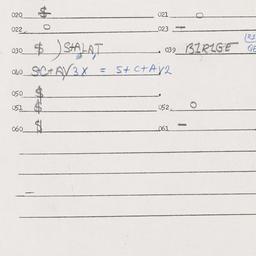 020 $ 021 0
022 0 023 –
030 $ ) STALAT 039 BIRIGE
040 SC+A√3X = S+C+A√2
050 $
051 $ 052 0
060 $ 061 –
–